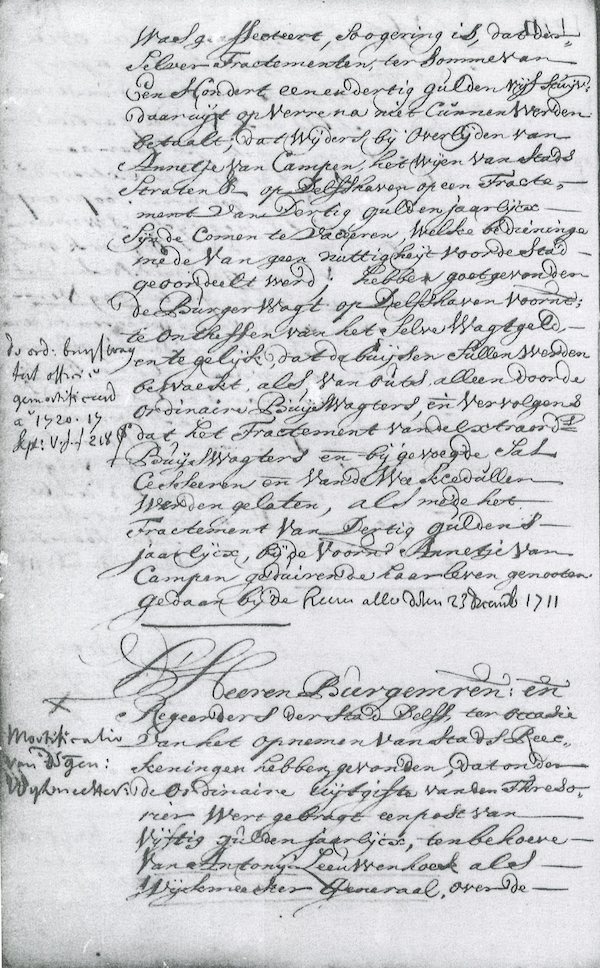 was geaffecteert, soo gering is, dat die
selve Tractementen, ter somme van
Een Hondert eenendertig gulden vijf stuijv:
daar uijt op verre na niet cunnen werden
betaalt, dat wijders bij overlijden van
Annetje van Campen, het wijen van Stads
Straten & op Delfshaven, op een Tracte-
ment van Dertig gulden jaarlijcx
sijnde comen te vaceren, welke bedieninge
mede van geen nuttigheijt voor de Stad
geoordeelt werd; hebben goetgevonden
de Burger Wagt op Delfshaven voornt:
te ontheffen van het selve Wagtgeld,
en te gelijk, dat de buijsen sullen werden
bewaekt, als van outs, alleen door de
ordinaire Buijs Wagters, en vervolgens
dat het Tractement van de Extraord:
Buijs Wagters en bij gevoegde sal
Cesseeren en van de Weekcedullen
werden gelaten, als mede het
Tractement van Dertig guldens
jaarlijcx, bij de voorn: Annetje van
Campen geduirende haar leven genooten
gedaan bij de heren alle den 23 decemb 1711
de ord: buijswag
gemortificeerd
a° 1720. 17
sept: V. f. 218
D'Heeren Burgemren: en
Regeerders der Stad Delff, ter occasie
van het opnemen van Stads Reec-
keningen hebben gevonden, dat onder
de ordinaire uijtgifte van den Threso-
rier wert gebragt een post van
vijftig gulden jaarlijcx, ten behoeve
van Antonij Leeuwenhoek als
Wijckmeester Generaal, over de
Mortificatie
van d' gen:
Wijkmeester: